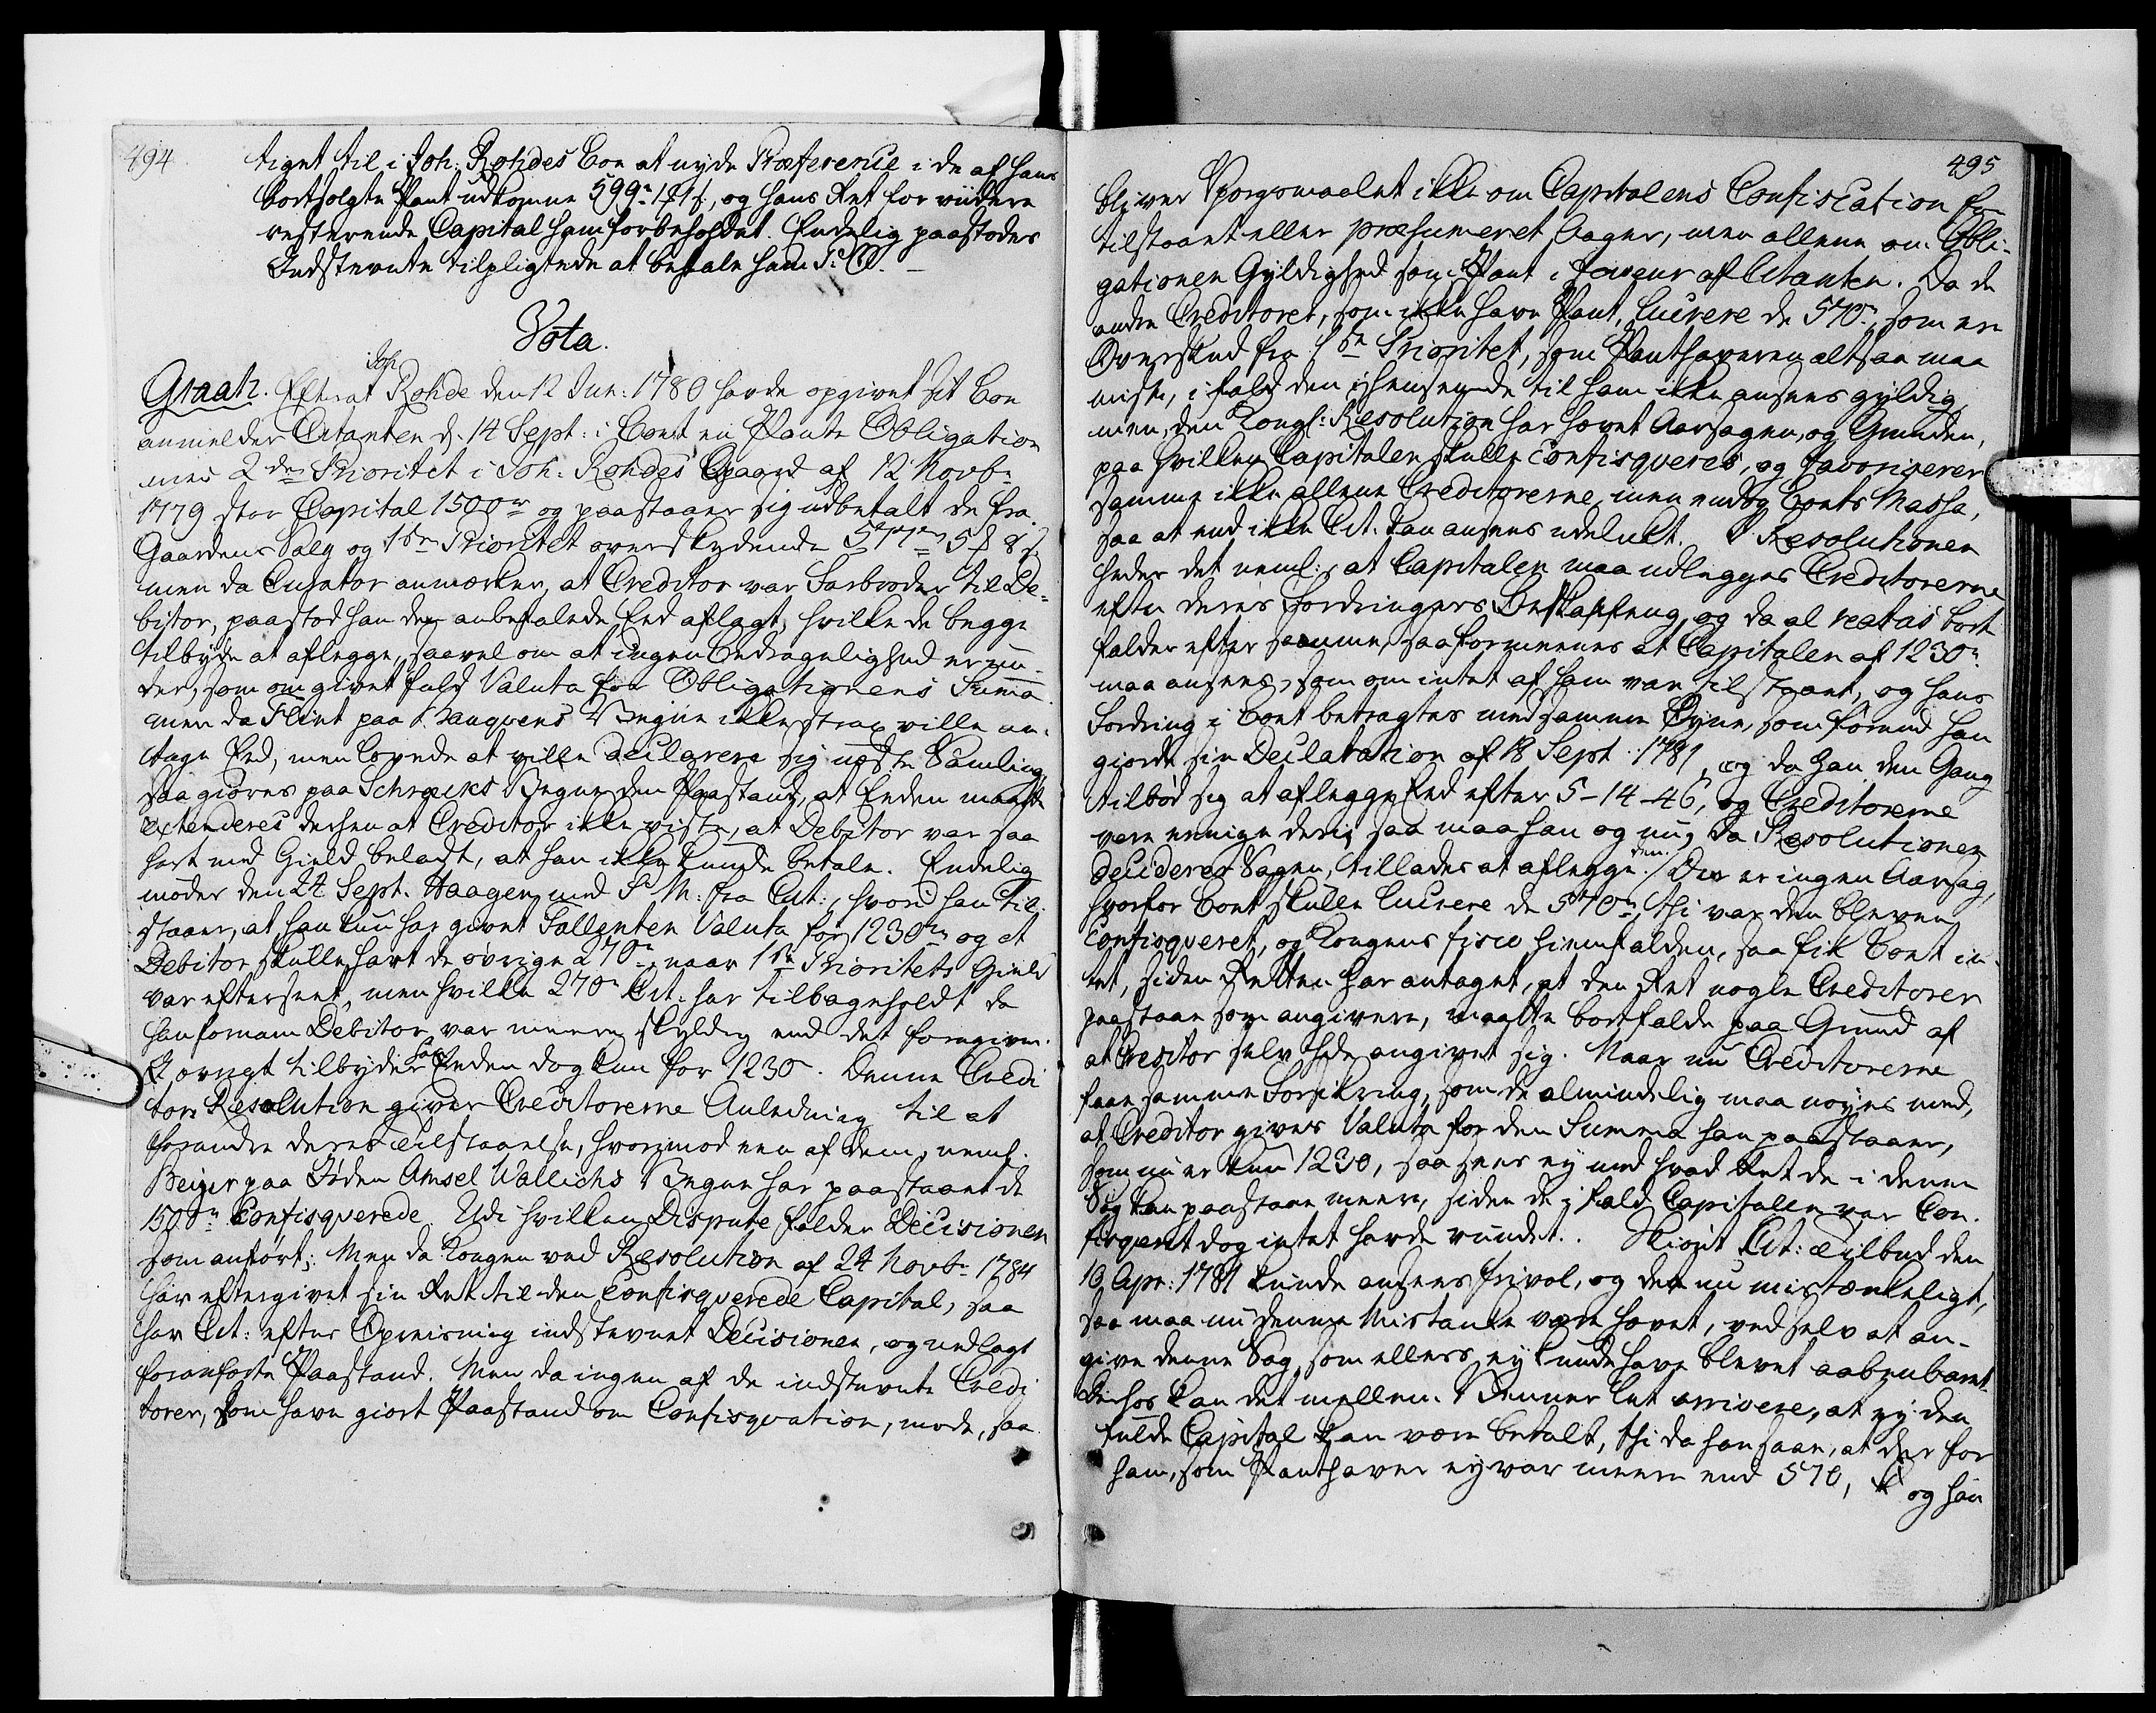 494
tiget til i Joh: Rohdes Boe at nyde Præference i de af hans
bortsolgte Pant udkomne 599 r 1 # 1 s, og hans Ret for vüdere
resterende Capital ham forbeholdet. Endelig paastodes
Indstevnte tilpligtede at betale ham S: O. –
Vota.
Graah. Efterat Joh Rohde den 12 Jun: 1780 havde opgivet sit Boe
anmelder Citanten d. 14 Sept: i Boet en Pante Obligation
med 2den Prioritet i Joh: Rohdes Gaard af 12 Novbr
1779 stor Capital 1500 r og paastaaer sig udbetalt de fra
Gaardens Salg og 1ste Prioritet overskydende 577 r 5 # 8 s.
men da Curator anmærker, at Creditor var Farbroder til De-
bitor, paastod han den anbefalede Eed aflagt, hvilke de begge
tilbyde at aflegge, saavel om at ingen Bedragelighed er un-
der, som om givet fuld Valuta for Obligationens Summa
men da Flint paa Bauqvens Vegne ikke strax ville an-
tage Eed, men lovede at ville declarere sig næste Samling,
saa giøres paa Schrøcks Vegne den Paastand, at Eeden maatte
extenderes derhen at Creditor ikke viste, at Debitor var saa
hart med Gield beladt, at han ikke kunde betale. Endelig
møder den 24 Sept. Haagen med S. M. fra Cit:, hvori han til-
staaer, at han kun har givet Fallenten Valuta for 1230 r og at
Debitor skulle havt de øvrige 270 r, naar 1ste Prioritets Gield
var efterseet, men hvilke 270 r Cit: har tilbageholdt da
han fornam Debitor var meere skyldig end det foregivne.
I øvrigt tilbyder han Eeden dog kun for 1230 r. Denne Credi
tors Resolution giver Creditorerne Anledning til at
forandre deres Tilstaaelse, hvorimod een af dem, neml.
Beyer paa Jøden Amsel Wallichs Vegne har paastaaet de
1500 r Confisqverede. Udi hvilken Dispute falder Decisionen
som anført; Men da Kongen ved Resolution af 24 Novbr 1784
har eftergivet sin Ret til den Confisqverede Capital, saa
har Cit: efter Opreisning indstevnet Decisionen, og nedlagt
foranførte Paastand. Men da ingen af de indstevnte Credi
torer, som have giort Paastand om Confisqvation, møde, saa
495
bliver Spørgsmaalet ikke om Capitalens Confiscation for
tilstaaet eller præsumeret Aager, men allene om Obli-
gationen Gyldighed som Pant i faveur af Citanten. Da de
andre Creditorer, som ikke have Pant, lucrere de 570 r, som er
Overskud fra 1ste Prioritet, som Panthaveren altsaa maa
miste, i fald den i henseende til ham ikke ansees gyldig,
men, den Kongl: Resolution har hævet Aarsagen, og Grunden,
paa hvilken Capitalen skulle confisqveres, og favoriserer
samme ikke allene Creditorerne, men endog Boets Massa,
saa at end ikke Cit: kan ansees udelukt. I Resolutionen
heder det neml:, at Capitalen maa udlegges Creditorerne
efter deres Fordringers Beskaffenhed, og da al reatus bort
falder efter samme, saa formeenes at Capitalen af 1230 r
maa ansees, som om intet af ham var tilstaaet, og hans
Fordring i Boet betragtes med samme Øyne, som førend han
giorde sin Declaration af 18 Sept: 1781, og da han den Gang
tilbød sig at aflegge Eed efter 5-14-46, og Creditorerne
vare eenige deri, saa maa han og nu, da Resolutionen
deciderer Sagen, tillades at aflegge den. Der er ingen Aarsag,
hvorfor Boet skulle lucrere de 570 r, thi var den bleven
confisqveret, og Kongens fisco hiemfalden, saa fik Boet in-
tet, siden Retten har antaget, at den Ret nogle Creditorer
paastaae som angivere, maatte bortfalde paa Grund af
at Creditor selv hde angivet sig. Naar nu Creditorerne
faae samme Forsikring, som de almindelig maa nøyes med,
at Creditor gives Valuta for den Summa han paastaaer,
som nu er kun 1230, saa sees ey med hvad Ret de i denne
Sag kan paastaae meere, siden de i fald Capitalen var Con-
fisqveret dog intet havde vundet. Skiønt Cit: Tilbud den
10 Apr: 1781 kunde ansees frivol, og der nu mistænkeligt,
saa maa nu denne Mistanke være hævet, ved selv at an-
give denne Sag, som ellers ey kunde have blevet aabenbaret.
Derhos kan det mellem Venner let arrivere, at ey den
fulde Capital kan være betalt, thi da han saae, at der for
ham, som Panthaver ey var meere end 570, og han